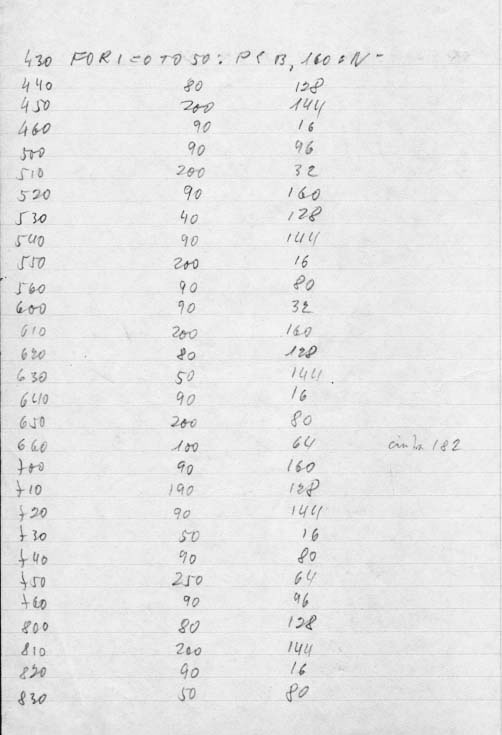 430 FOR I=0 TO 50: P  B, 160: N-
440 80 128
450 200 144
460 90 16
500 90 96
510 200 32
520 90 160
530 40 128
540 90 144
550 200 16
560 90 80
600 90 32
610 200 160
620 80 128
630 50 144
640 90 16
650 200 80
660 100 64 182
700 90 160
710 190 128
720 90 144
730 50 16
740 90 80
750 250 64
760 90 96
800 80 128
810 200 144
820 90 16
830 50 80